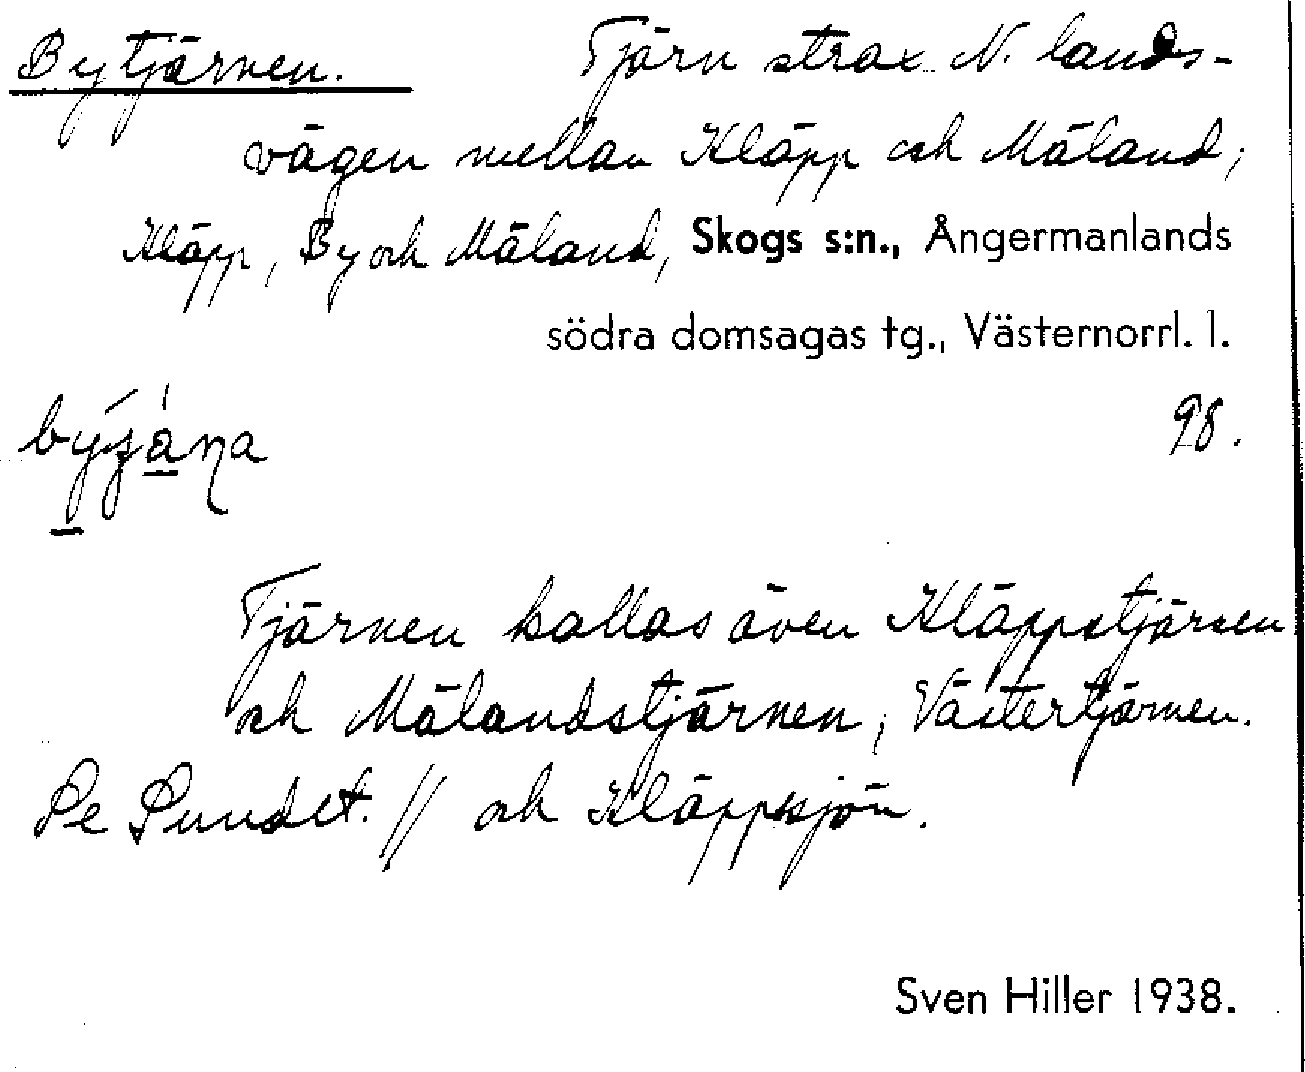 Bytjärnen. Tjärn strax N. lands-
vägen mellan Kläpp och Mäland;
Kläpp, By och Mäland, Skogs s:n., Ångermanlands
södra domsagas tg., Västernorrl. l.
98.
Tjärnen kallas även Kläppstjärnen
och Mälandstjärnen, Västertjärnen.
Se Sundet. // och Kläppsjön.
Sven Hiller 1938.